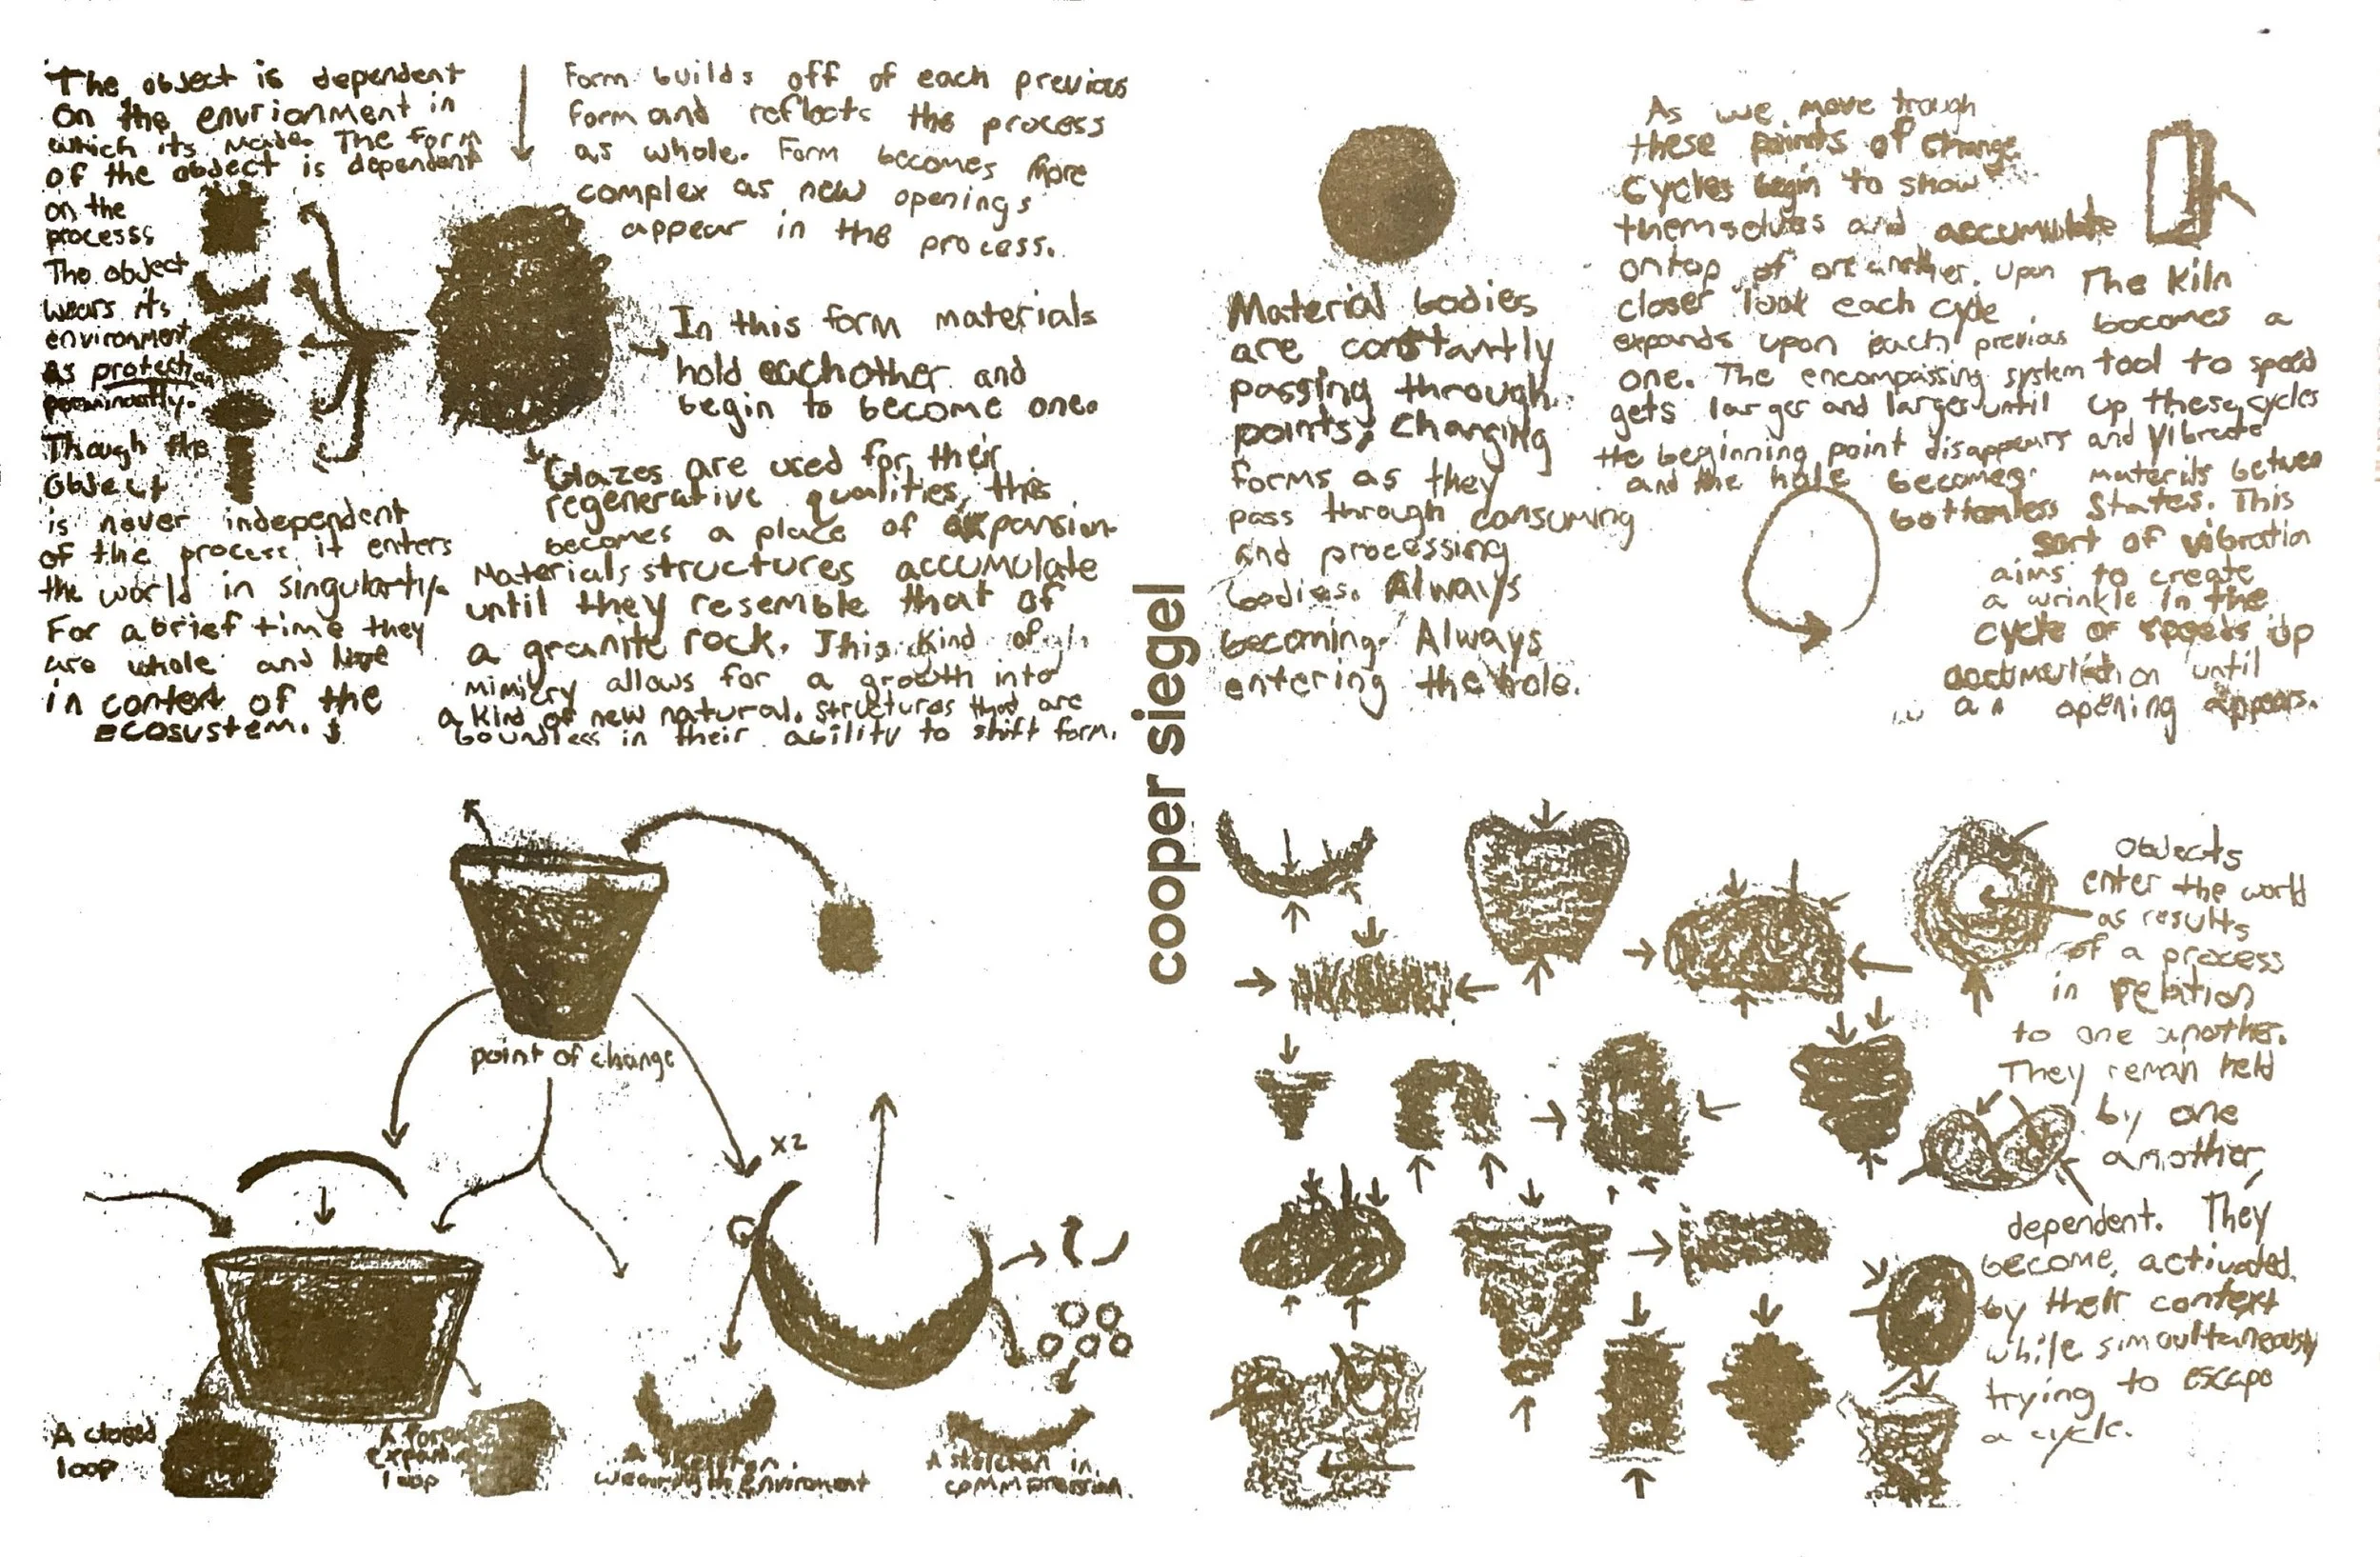 The object is dependent
on the envrionment in
which its made. The form
of the object is dependent
on the
processs
The object
wears its
environment
as protection
perminantly.
Though the
object
is never independent
of the process it enters
the world in singularty.
For a brief time they
are whole and live
in context of the
ecosustem.
Form builds off of each previous
form and reflects the process
as whole. Form becomes more
complex as new openings
appear in the process.
In this form materials
hold eachother and
begin to become one.
Glazes are used for their
regenerative qualities, this
becomes a place of expansion
Materials structures accumulate
until they resemble that of
a granite rock. This kind of
mimicry allows for a growth into
a kind of new natural. structures that are
boundless in their ability to shift form.
point of change
x2
A closed
loop
A forever
expanding
loop
A skeleton
wearing its enviroment
A skeleton in
commpression.
cooper siegel
Material bodies
are constantly
passing through
points, changing
forms as they
pass through consuming
and processing
bodies. Always
becoming. Always
entering the hole.
As we move trough
these points of change
cycles begin to show
themselves and accumulate
ontop of one another. upon
closer look each cycle
expands upon each previous
one. The encompassing system
gets larger and larger until
the beginning point disappears
and the hole becomes
bottomless
The Kiln
becomes a
tool to speed
up these cycles
and vibrate
materils between
States. This
sort of vibration
aims to create
a wrinkle in the
cycle or speeds up
until
an opening appears.
Objects
enter the world
as results
of a process
in relation
to one another.
They remain held
by one
another,
dependent. They
become activated
by their context
while simoultaneously
trying to escape
a cycle.